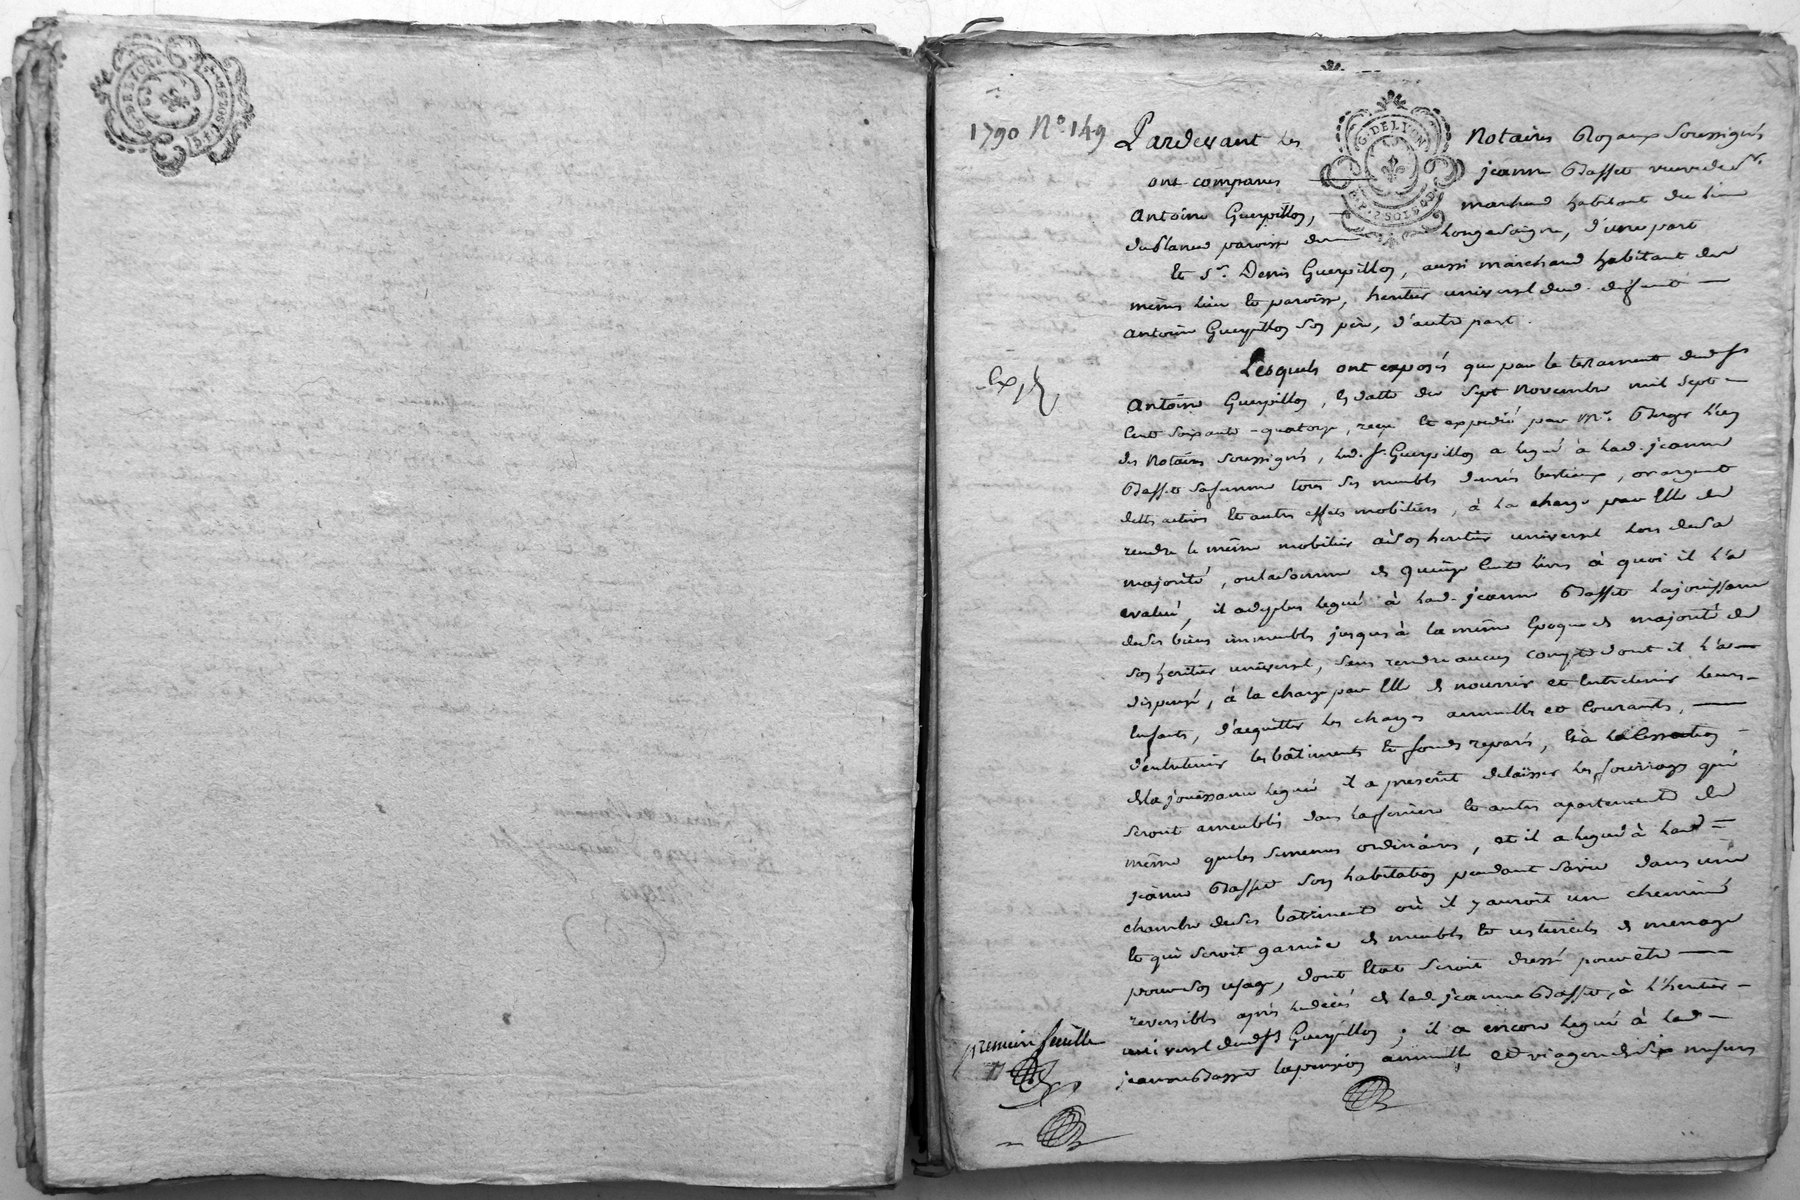 G. DE LYON
2 SOLS 4 D
1790 N.º 149
G. DE LYON
P. P. 2 SOLS 4 D
Pardevant les Notaires Royaux soussignés
ont comparus jeanne Basset veuve de Sr.
Antoine Guerpillon, marchand habitant du lieu
paroisse de Longesaigne, d'une part
Et Sr. Denis Guerpillon, aussi marchand habitant du
même lieu et paroisse, heritier universel dud. defunt
Antoine Guerpillon son père, d'autre part.
Exp
Lesquels ont exposés que par le testament dud Sr
Antoine Guerpillon, en datte du sept novembre mil sept
cent soixante-quatorze, reçu et expedié par Me. l'un
des Notaires soussignés, led. Sr. Guerpillon a legué à lad. jeanne
Basset sa femme tous ses meubles denrés bestiaux, or argent
dettes actives et autres effets mobiliers, à la charge par Elle de
rendre le même mobilier à son heritier universel lors de sa
majorité, ou la somme de quinze cents livres à quoi il l'a
evalué, il a de plus legué à lad. jeanne Basset la jouissance
de ses biens immeubles jusques à la même Epoque de majorité de
son heritier universel, sans rendre aucun compte dont il l'a
dispensé, à la charge par Elle de nourrir et Entretenir leurs
Enfants, d'acquitter les charges annuelles et Courantes,
d'entretenir les bâtiments et fonds reparés, Et à la Cessation
de la jouissance leguée il a prescrit de laisser les fourrages qui
seront ameublés dans la feniere et autres apartements de
même que les semences ordinaires, et il a legué à lad
jeanne Basset son habitation pendant sa vie dans une
chambre de ses bâtiments où il y auroit une cheminée
et qui seroit garnie de meubles et ustenciles de menage
pour son usage, dont Etat seroit dressé pour être
reversibles après le décès de lad jeanne Basset, à l'heritier
universel dud Sr Guerpillon; il a encore legué à lad
jeanne Basset la pension annuelle et viagere de six mesures
premiere feuille